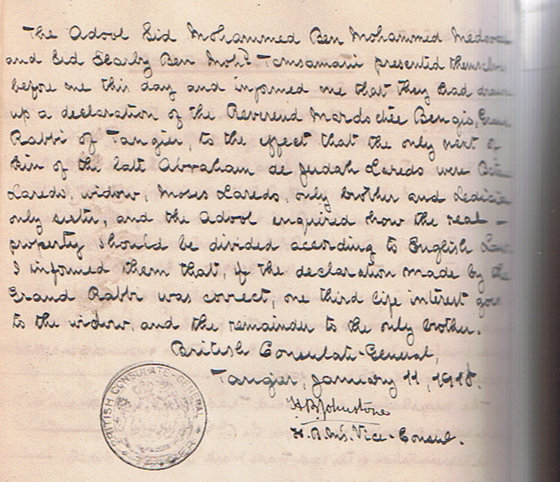 The Adool Sid Mohammed Ben Mohammed
and Sid Elarby Ben Moh.d Temsamani presented themselves
before me this day and informed me that they had drawn
up a declaration of the Reverend Mordochée Bengio, Grand
Rabbi of Tangier, to the effect that the only next of
kin of the late Abraham de Judah Laredo were
Laredo, widow, Moses Laredo, only brother and
only sister, and the Adool enquired how the real-
property should be divided according to English Law.
I informed them that, if the declaration made by the
Grand Rabbi was correct, one third life interest goes
to the widow and the remainder to the only brother.
British Consulate-General,
Tangier, January 11, 1918.
H.B. Johnstone
H.B.M's. Vice-Consul.
BRITISH CONSULATE-GENERAL
TANGIER